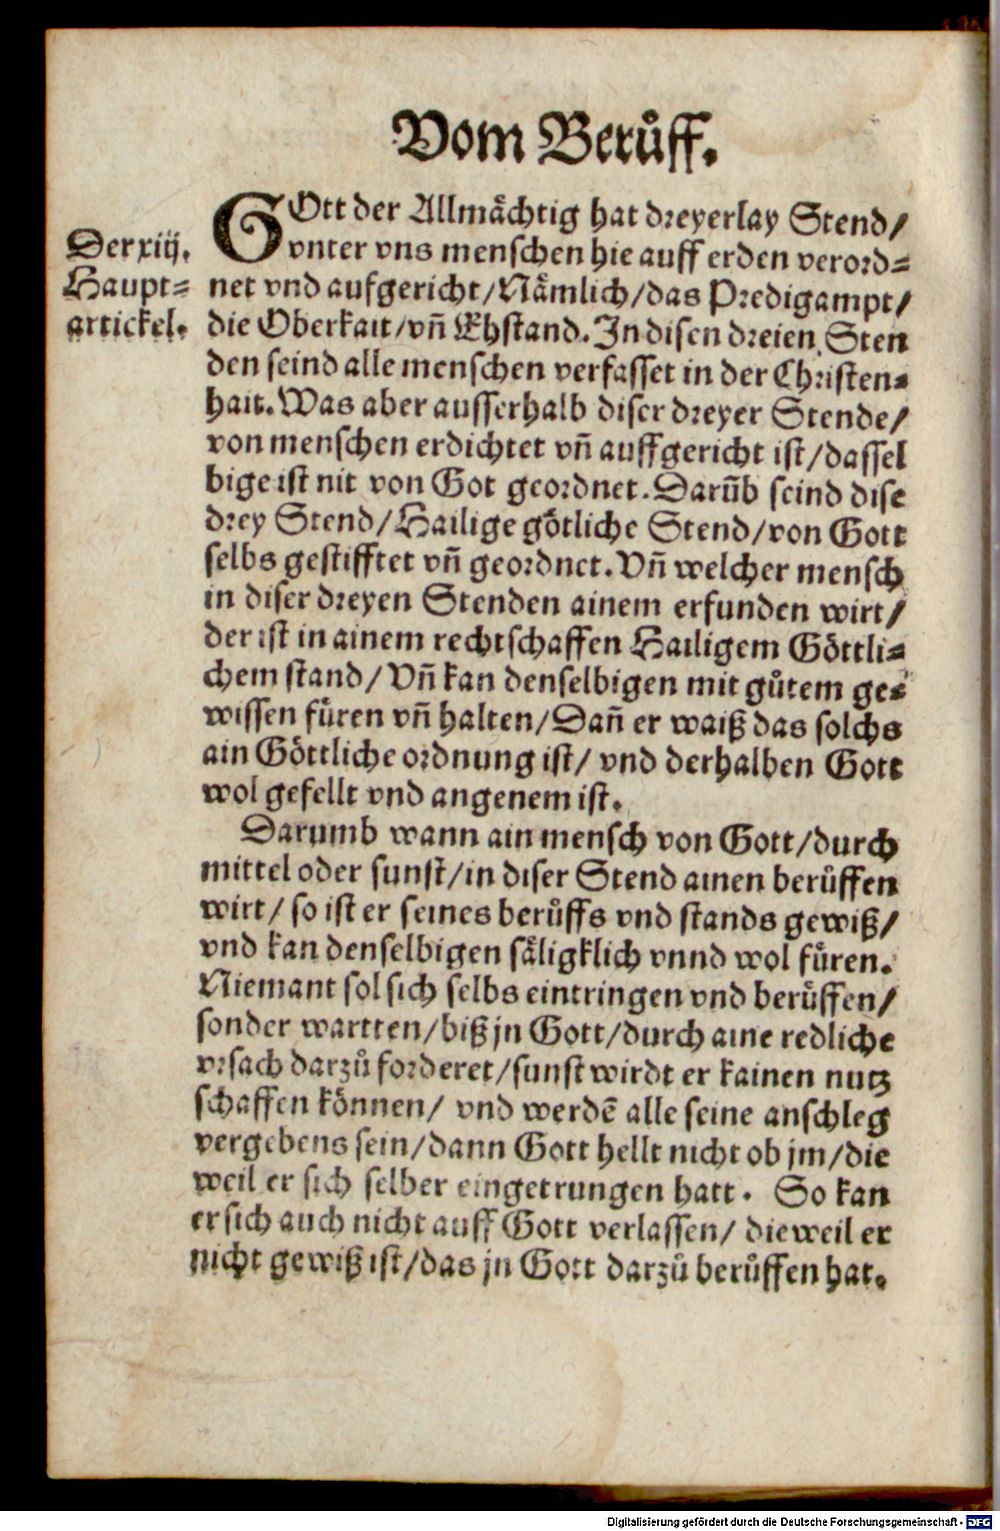 Vom Berůff.
Der xiij.
Haupt⸗
artickel.
GOtt der Allmächtig hat dreyerlay Stend/
vnter vns menschen hie auff erden verord⸗
net vnd aufgericht/Nämlich/das Predigampt/
die Oberkait/vñ Ehstand. In disen dreien Sten
den seind alle menschen verfasset in der Christen⸗
hait. Was aber ausserhalb diser dreyer Stende/
von menschen erdichtet vñ auffgericht ist/dassel
bige ist nit von Got geordnet. Darūb seind dise
drey Stend/Hailige götliche Stend/von Gott
selbs gestifftet vñ geordnet. Vñ welcher mensch
in diser dreyen Stenden ainem erfunden wirt/
der ist in ainem rechtschaffen Hailigem Göttli⸗
chem stand/Vñ kan denselbigen mit gůtem ge⸗
wissen füren vñ halten/Dañ er waiß das solchs
ain Göttliche ordnung ist/ vnd derhalben Gott
wol gefellt vnd angenem ist.
Darumb wann ain mensch von Gott/durch
mittel oder sunst/in diser Stend ainen berůffen
wirt/ so ist er seines berůffs vnd stands gewiß/
vnd kan denselbigen säligklich vnnd wol füren.
Niemant sol sich selbs eintringen vnd berůffen/
sonder wartten/biß jn Gott/durch aine redliche
vrsach darzů forderet/sunst wirdt er kainen nutz
schaffen können/ vnd werdē alle seine anschleg
vergebens sein/dann Gott hellt nicht ob jm/die
weil er sich selber eingetrungen hatt. So kan
er sich auch nicht auff Gott verlassen/ dieweil er
nicht gewiß ist/das jn Gott darzů berůffen hat.
Digitalisierung gefördert durch die Deutsche Forschungsgemeinschaft - DFG